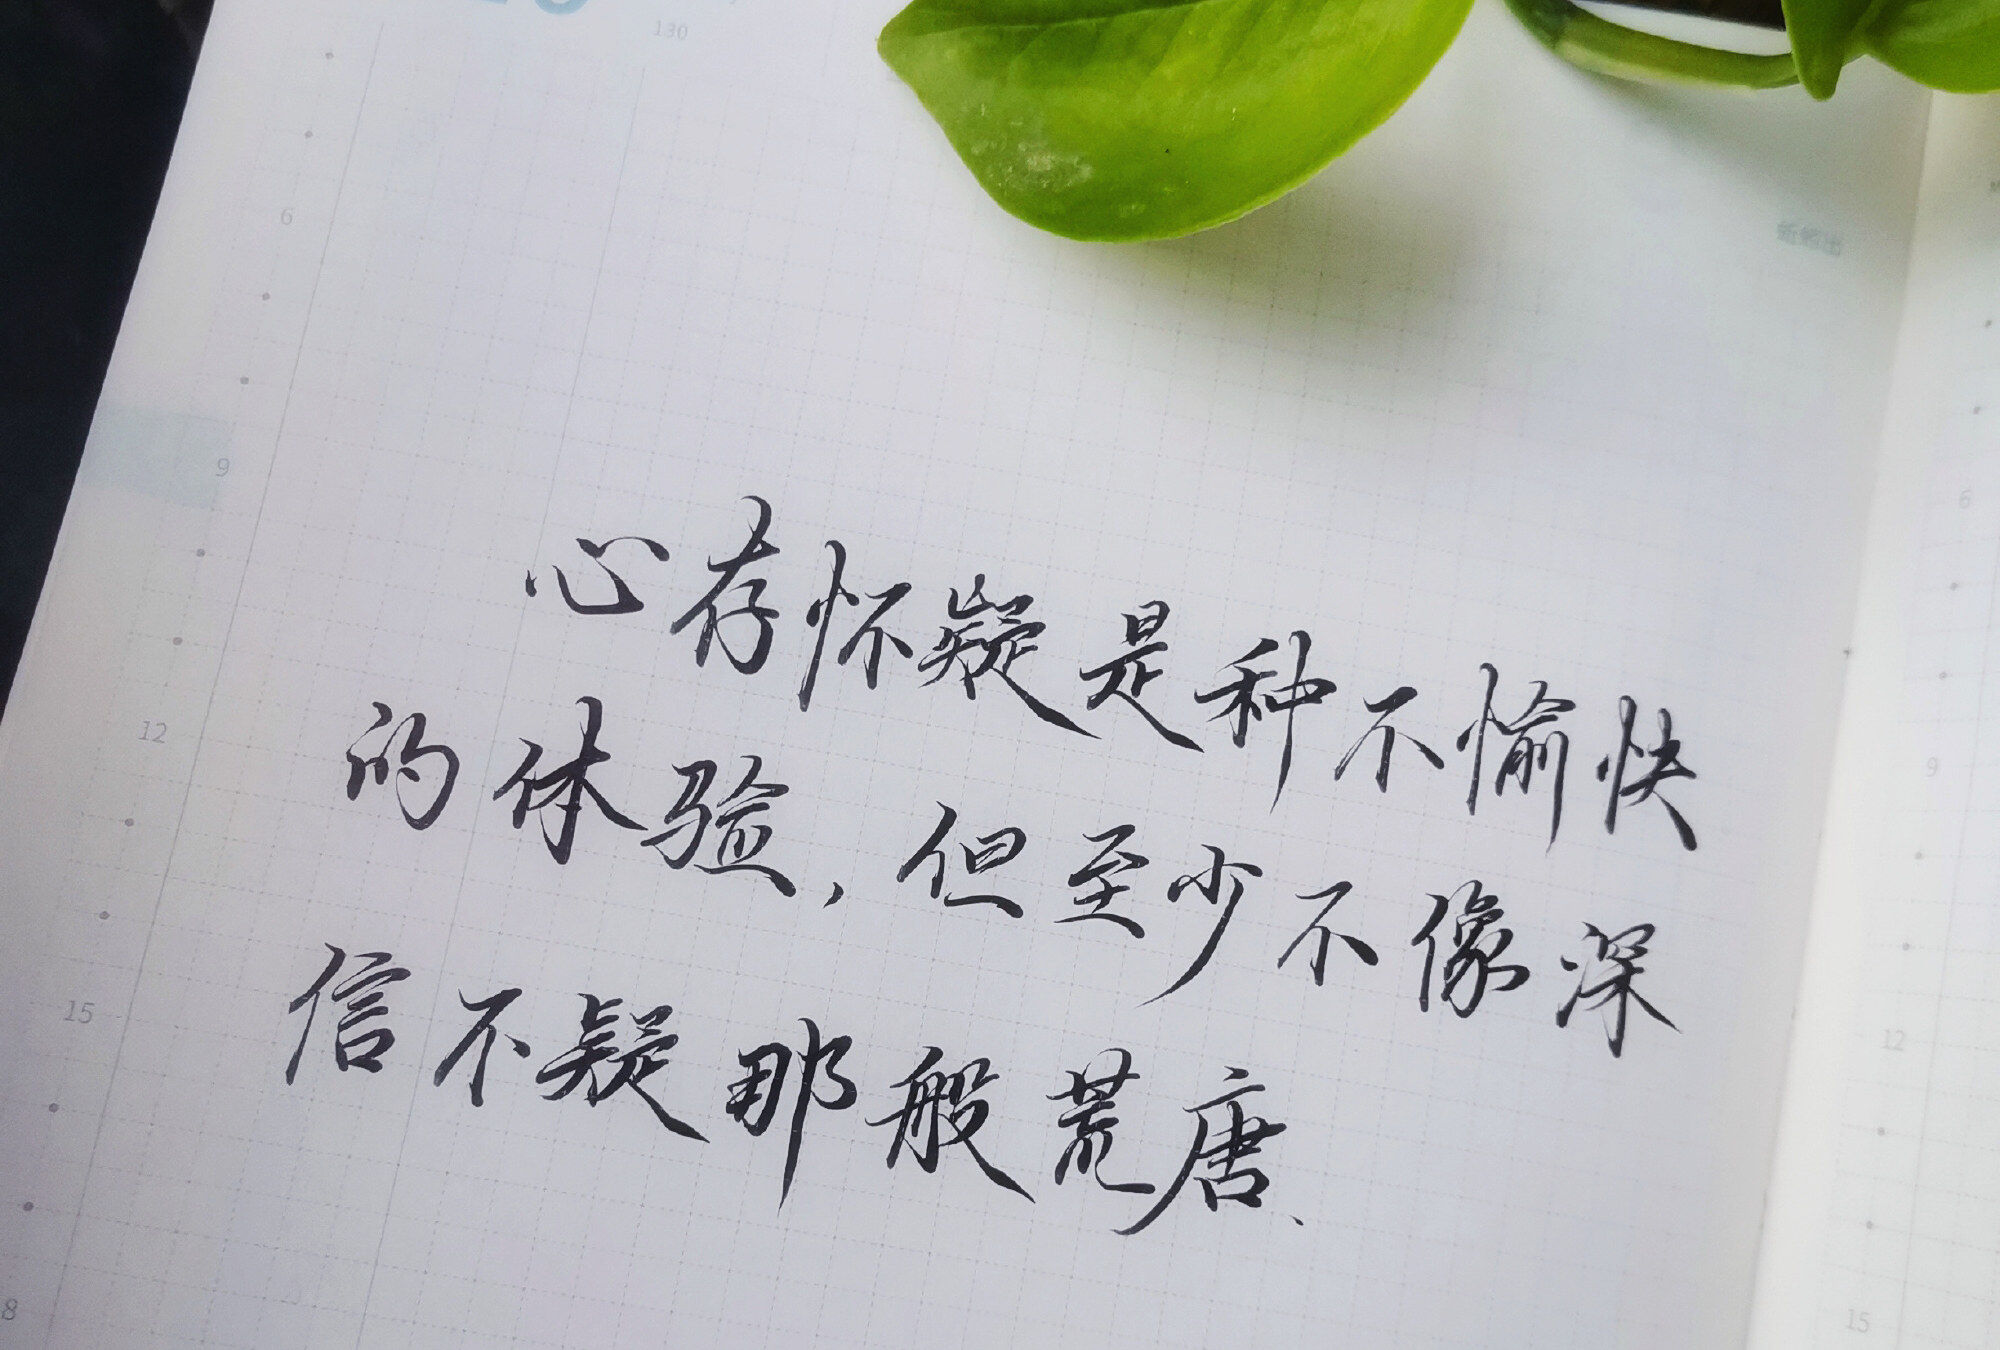 130
6
9
12
15
8
心存怀疑是种不愉快
的体验，但至少不像深
信不疑那般荒唐、
6
9
12
15